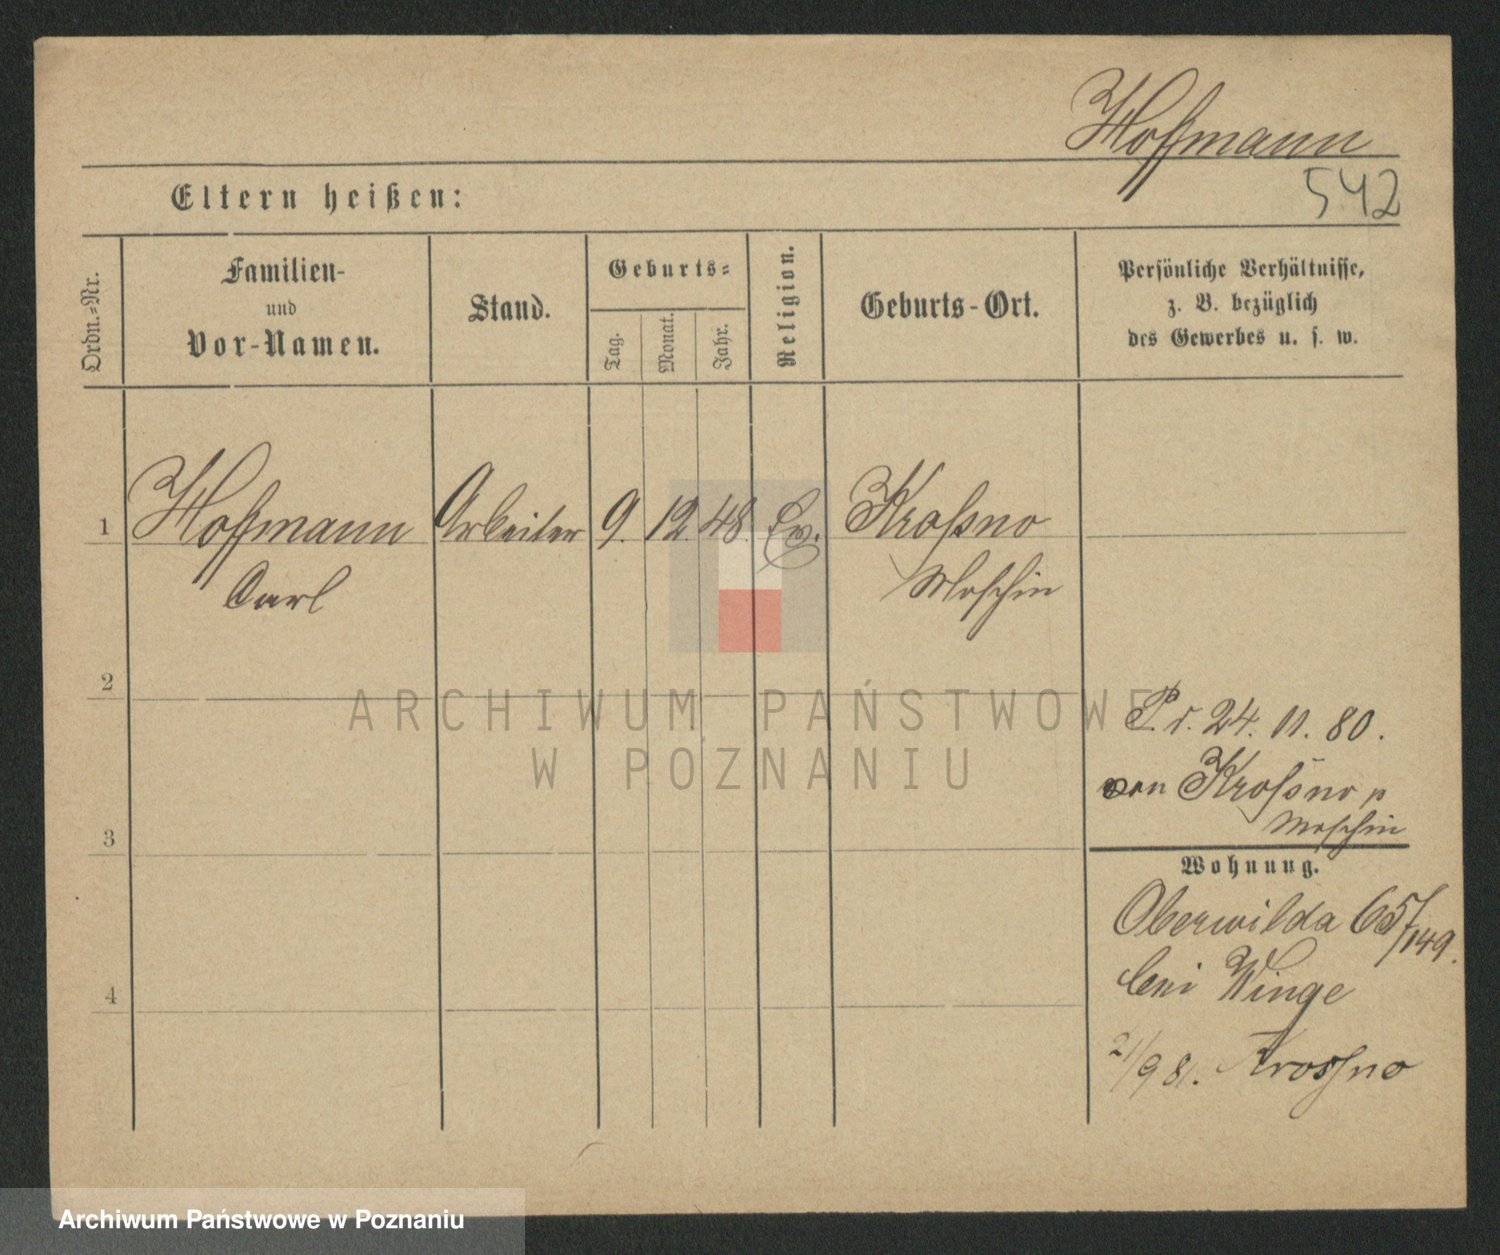 Hoffmann
542
Eltern heißen:
Ordn.-Nr.
Familien-
und
Vor-Namen.
Stand.
Geburts-
Tag.
Monat.
Jahr.
Religion.
Geburts-Ort.
Persönliche Verhältnisse,
z. B. bezüglich
des Gewerbes u. s. w.
1 Hoffmann Arbeiter 9. 12. 48. Ev. Krossno
Carl Moschin
2
P. v. 24. 11. 80.
von Krosno p
Moschin
3
Wohnung.
Oberwilda 65/149.
bei Winge
4
21/9 81. Krossno
ARCHIWUM PAŃSTWOWE
W POZNANIU
Archiwum Państwowe w Poznaniu